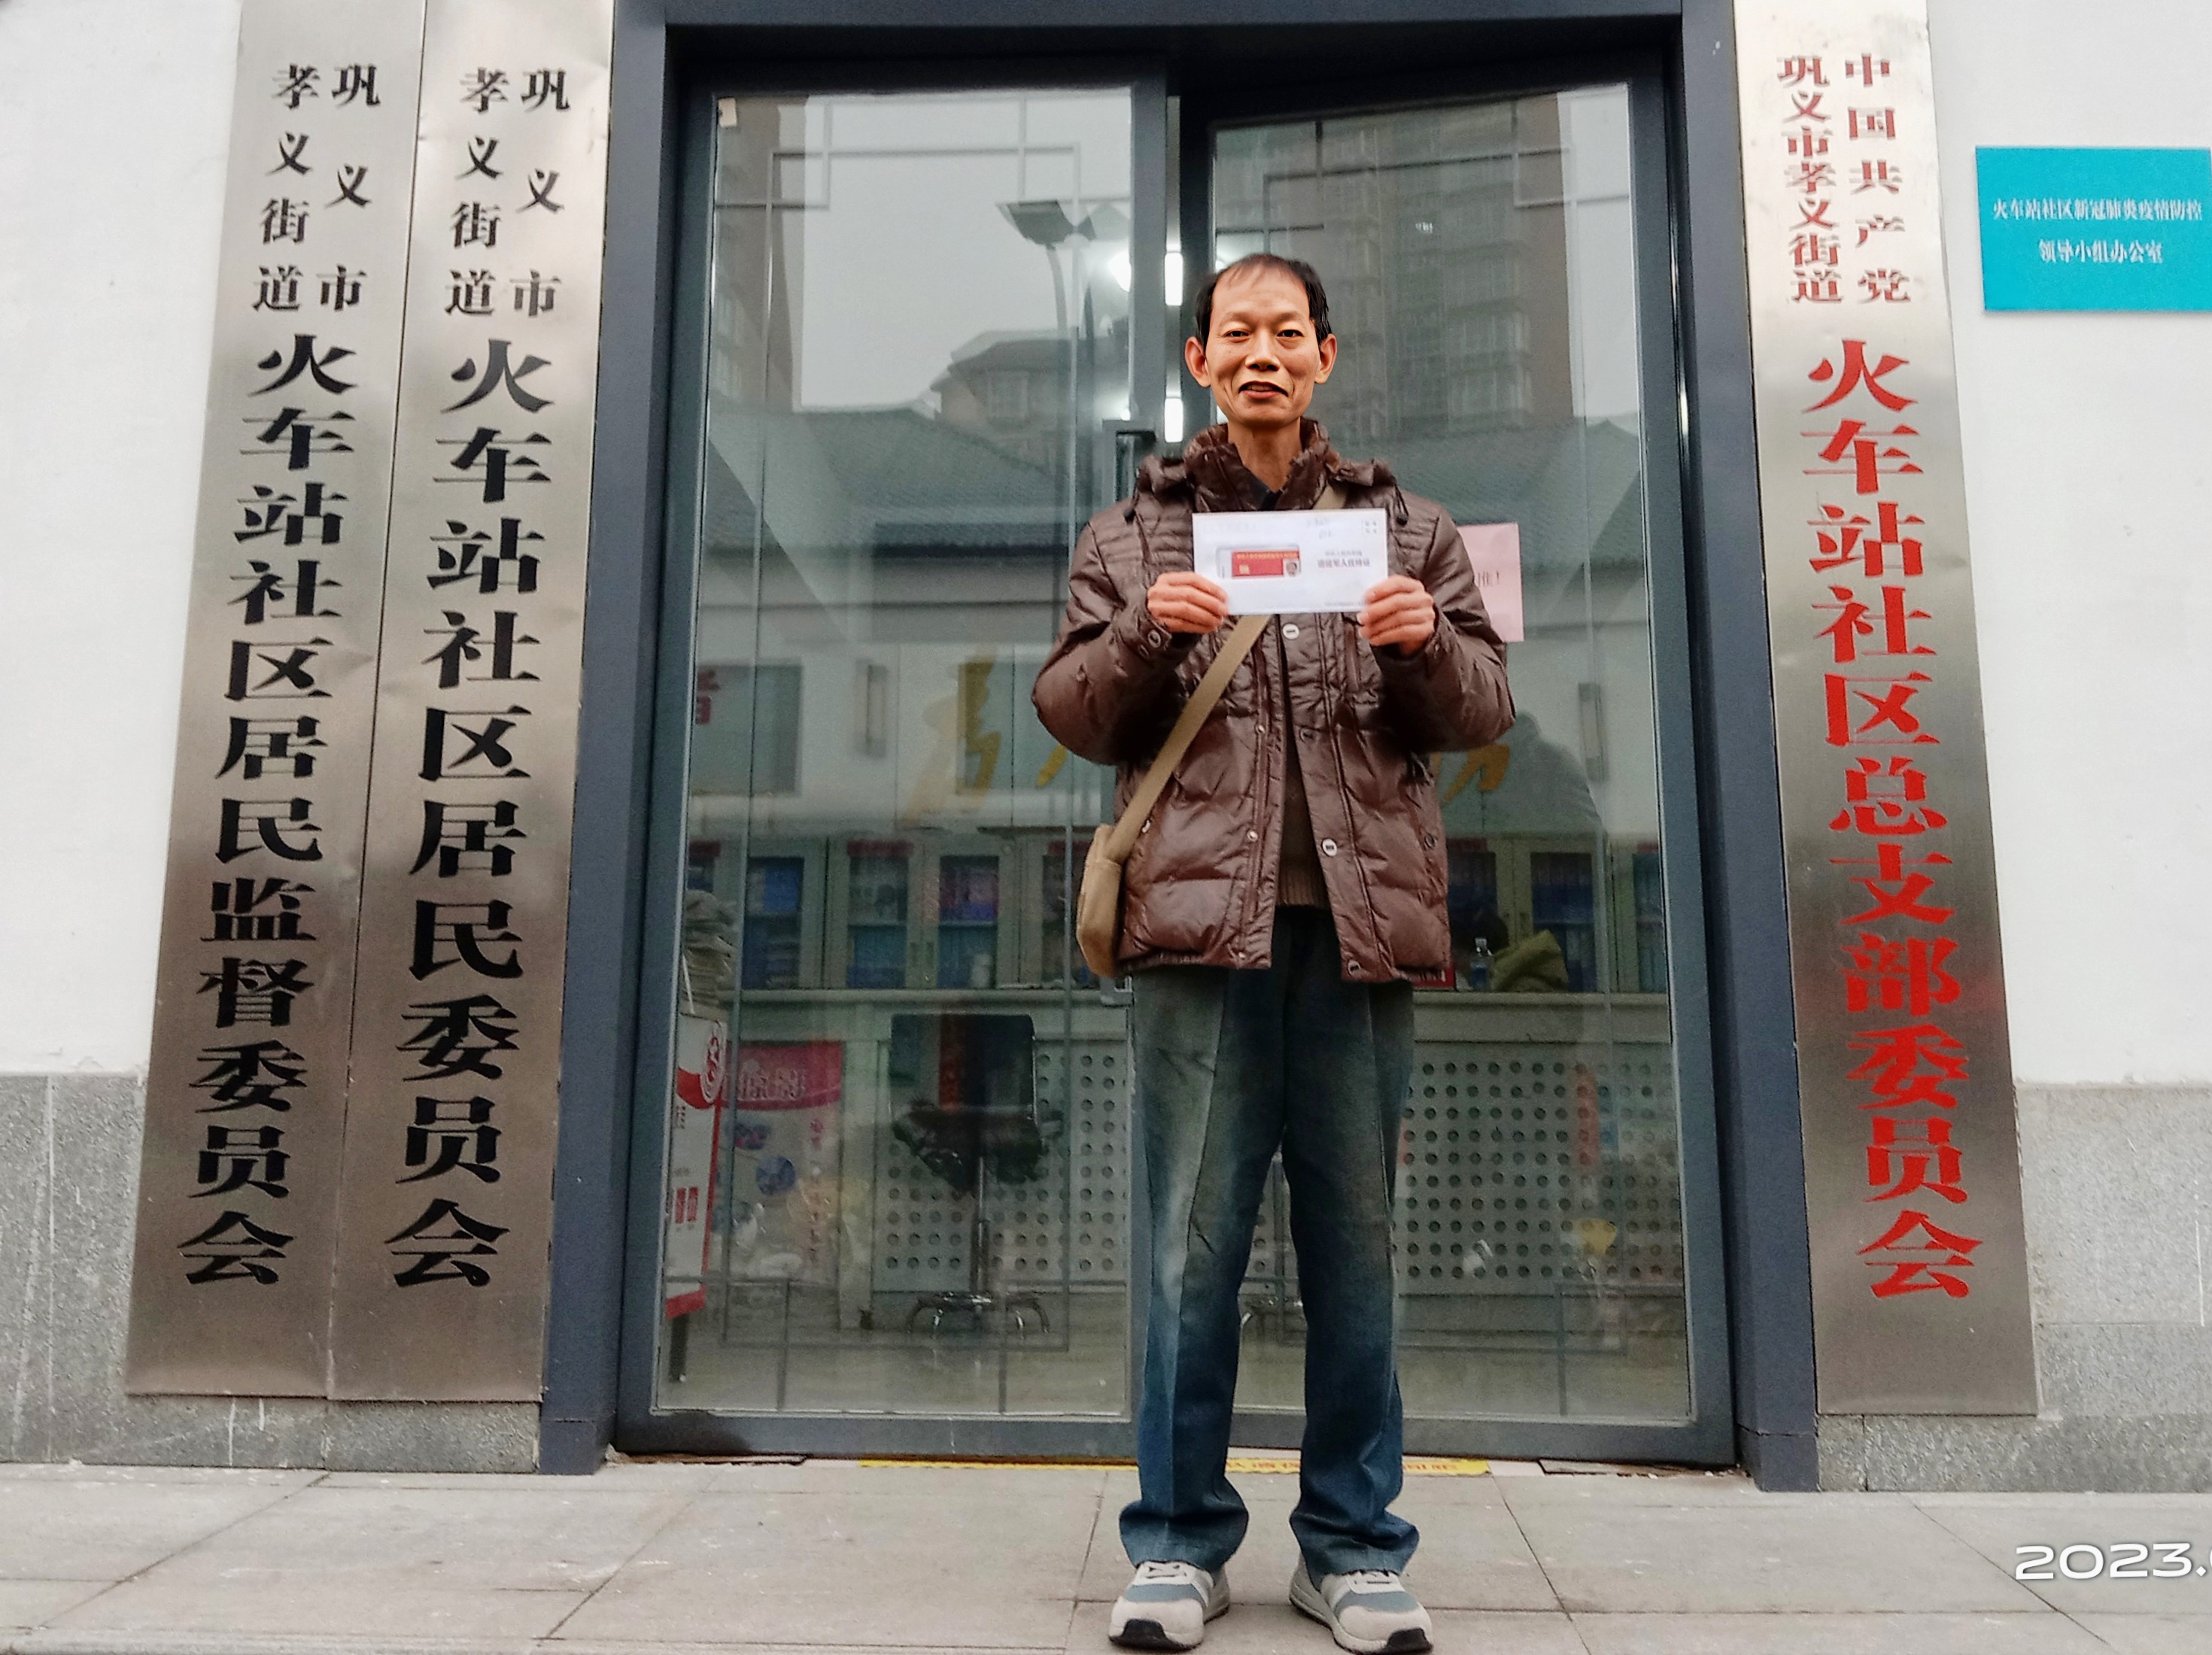 巩义市
孝义街道
火车站社区居民监督委员会
巩义市
孝义街道
火车站社区居民委员会
退役军人优待证
中国共产党
巩义市孝义街道
火车站社区总支部委员会
火车站社区新冠肺炎疫情防控
领导小组办公室
2023.